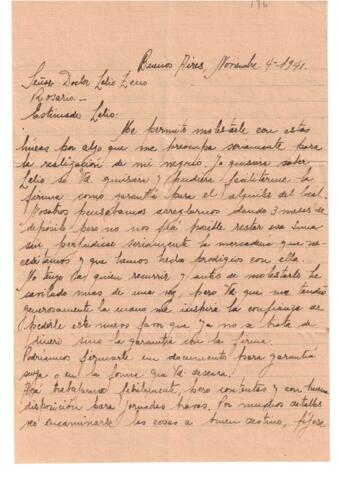 196
Buenos Aires, Noviembre 4-1941.
Señor Doctor Lelio Zeno
Rosario.-
Estimado Lelio:
Me permito molestarle con estas
líneas por algo que me preocupa seriamente para
la realización de mi negocio. Yo quisiera saber
Lelio si Vd. quisiera y pudiera facilitarme la
firma como garantía para el alquiler del local.
Nosotros pensábamos arreglarnos dando 3 meses de
depósito pero no nos fué posible restar esa suma
sin perjudicar seriamente la mercadería que ne-
cesitamos y que hemos hecho prodigios con ella.
No tengo a quien recurrir y antes de molestarle he
más de una vez, pero Vd que me tendió
generosamente la mano me inspira la confianza de
pedirle este nuevo favor que ya no se trata de
dinero sino la garantía con la firma.
Podríamos firmarle un documento para garantía
suya o en la forma que Vd deseara.
Acá trabajamos febrilmente, pero contentas y con buena
disposición para jornadas bravas. Por muchos detalles
veo encaminarse las cosas a buen destino, fíjese